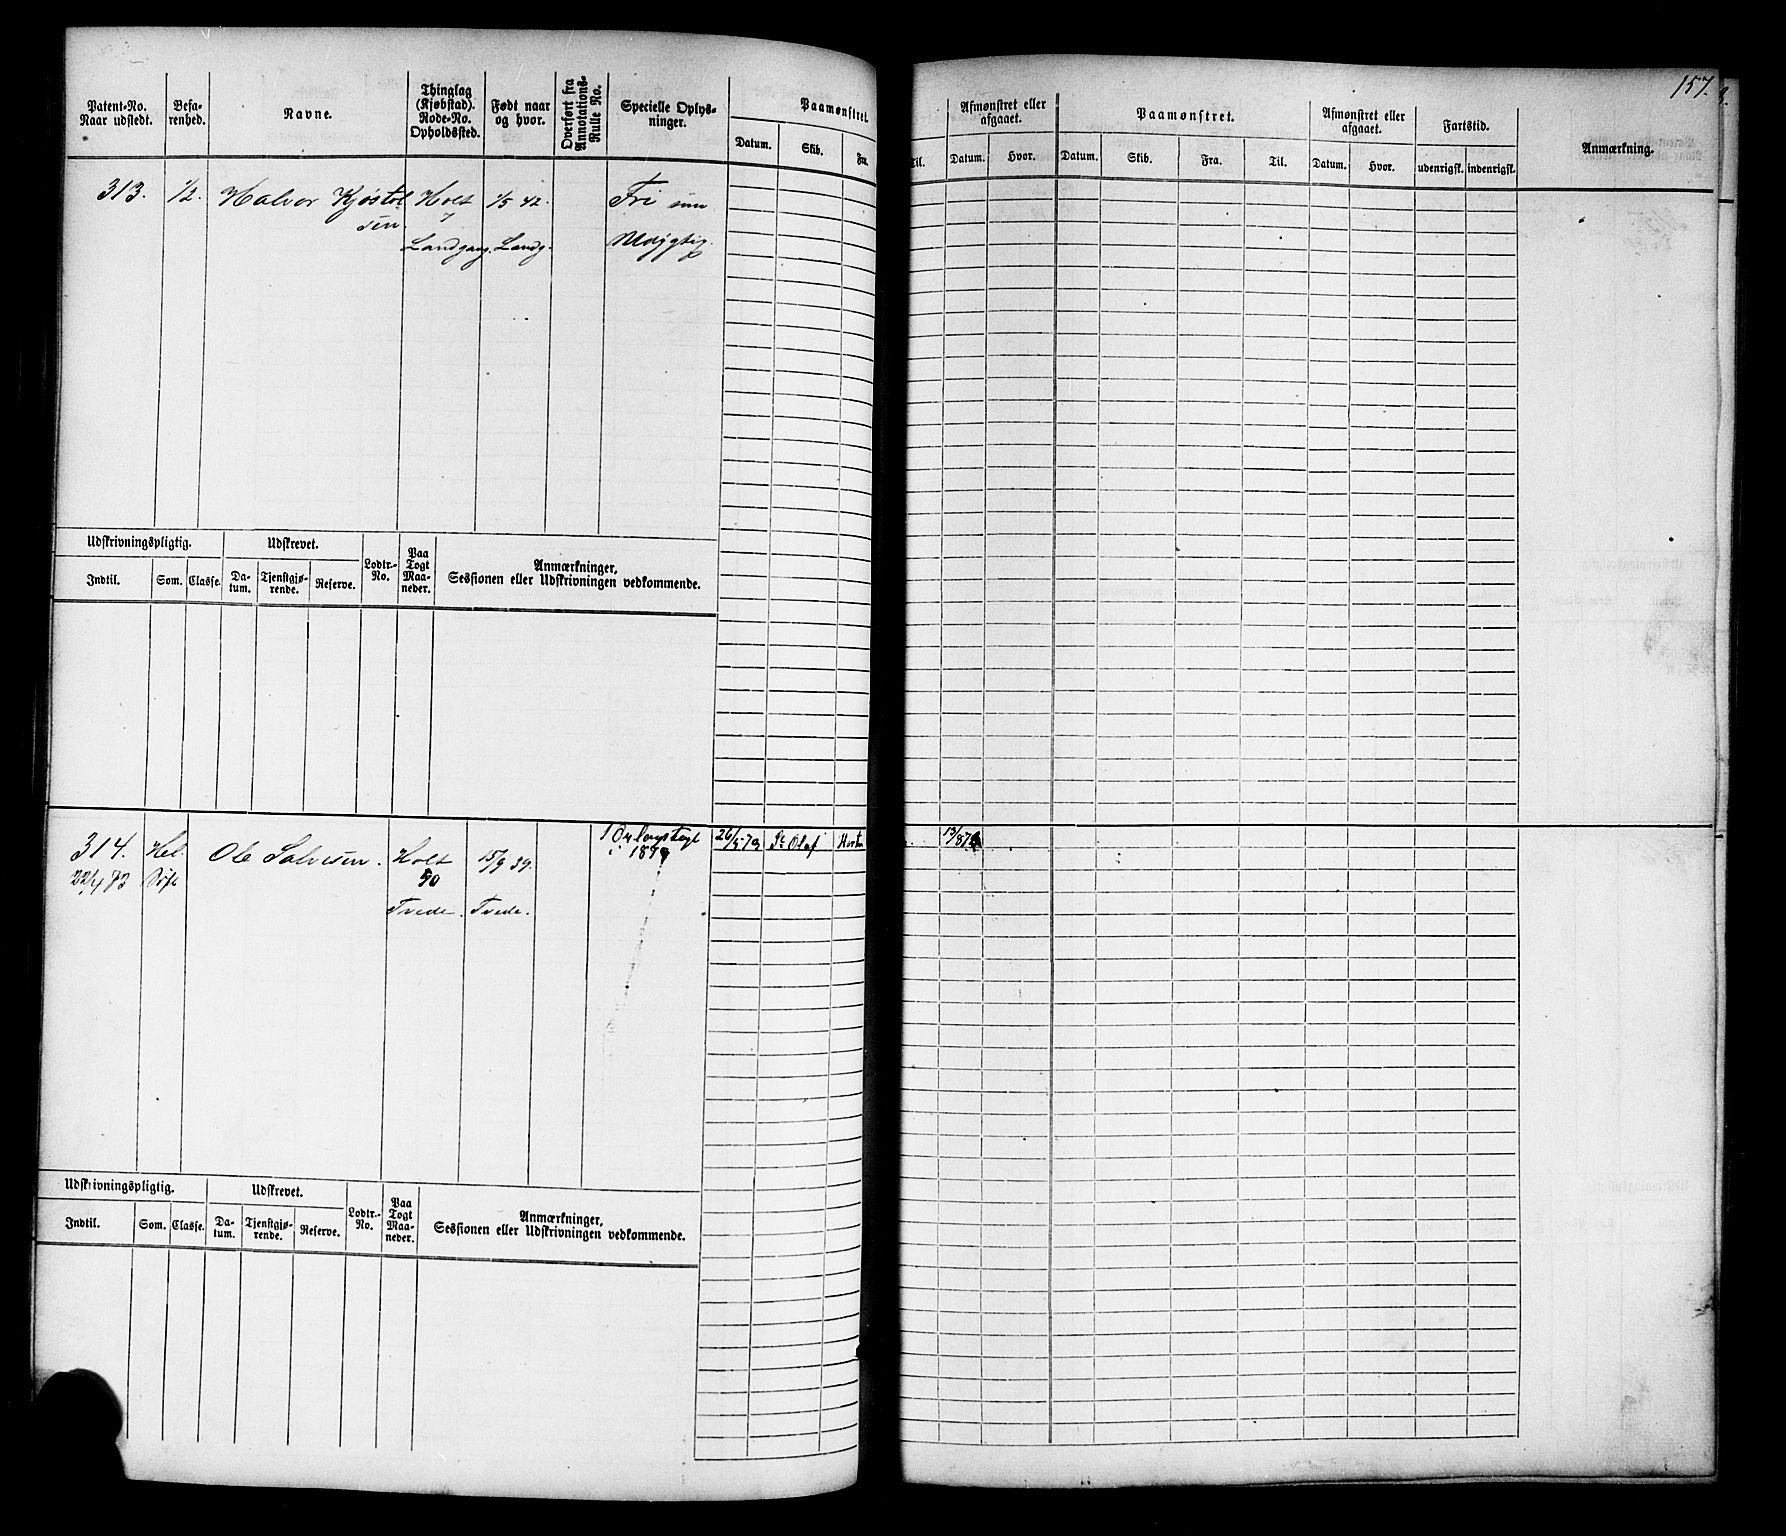 157.
Patent-No. Naar udstedt.
Befarenhed.
Navne.
Thinglag (Kjøbstad). Rode-No. Opholdssted.
Født naar og hvor.
Overført fra Annotations-Rulle No.
Specielle Oplysninger.
Paamønstret.
Datum. Skib. Fra. Til.
Afmønstret eller afgaaet.
Datum. Hvor.
Paamønstret.
Datum. Skib. Fra. Til.
Afmønstret eller afgaaet.
Datum. Hvor.
Fartstid.
udenrigsk. indenrigsk.
Anmærkning.
313. 1/2. Halvor Kjøstol Holt 1/5 42. Fri som
sen 7
Landgang. Landg. Udygtig.
Udskrivningspligtig. Udskrevet. Lodtr.-No. Paa Togt Maaneder. Anmærkninger, Sessionen eller Udskrivningen vedkommende.
Indtil. Som. Classe. Datum. Tjenstgjørende. Reserve.
314. Hel. Ole Salvesen. Holt 15/9 39. 1 Orlogstogt 26/5 79 St Olaf Horten 13/8 79
22/4 73 Søfl 50 i 1879
Tvede. Tvede.
Udskrivningspligtig. Udskrevet. Lodtr.-No. Paa Togt Maaneder. Anmærkninger, Sessionen eller Udskrivningen vedkommende.
Indtil. Som. Classe. Datum. Tjenstgjørende. Reserve.